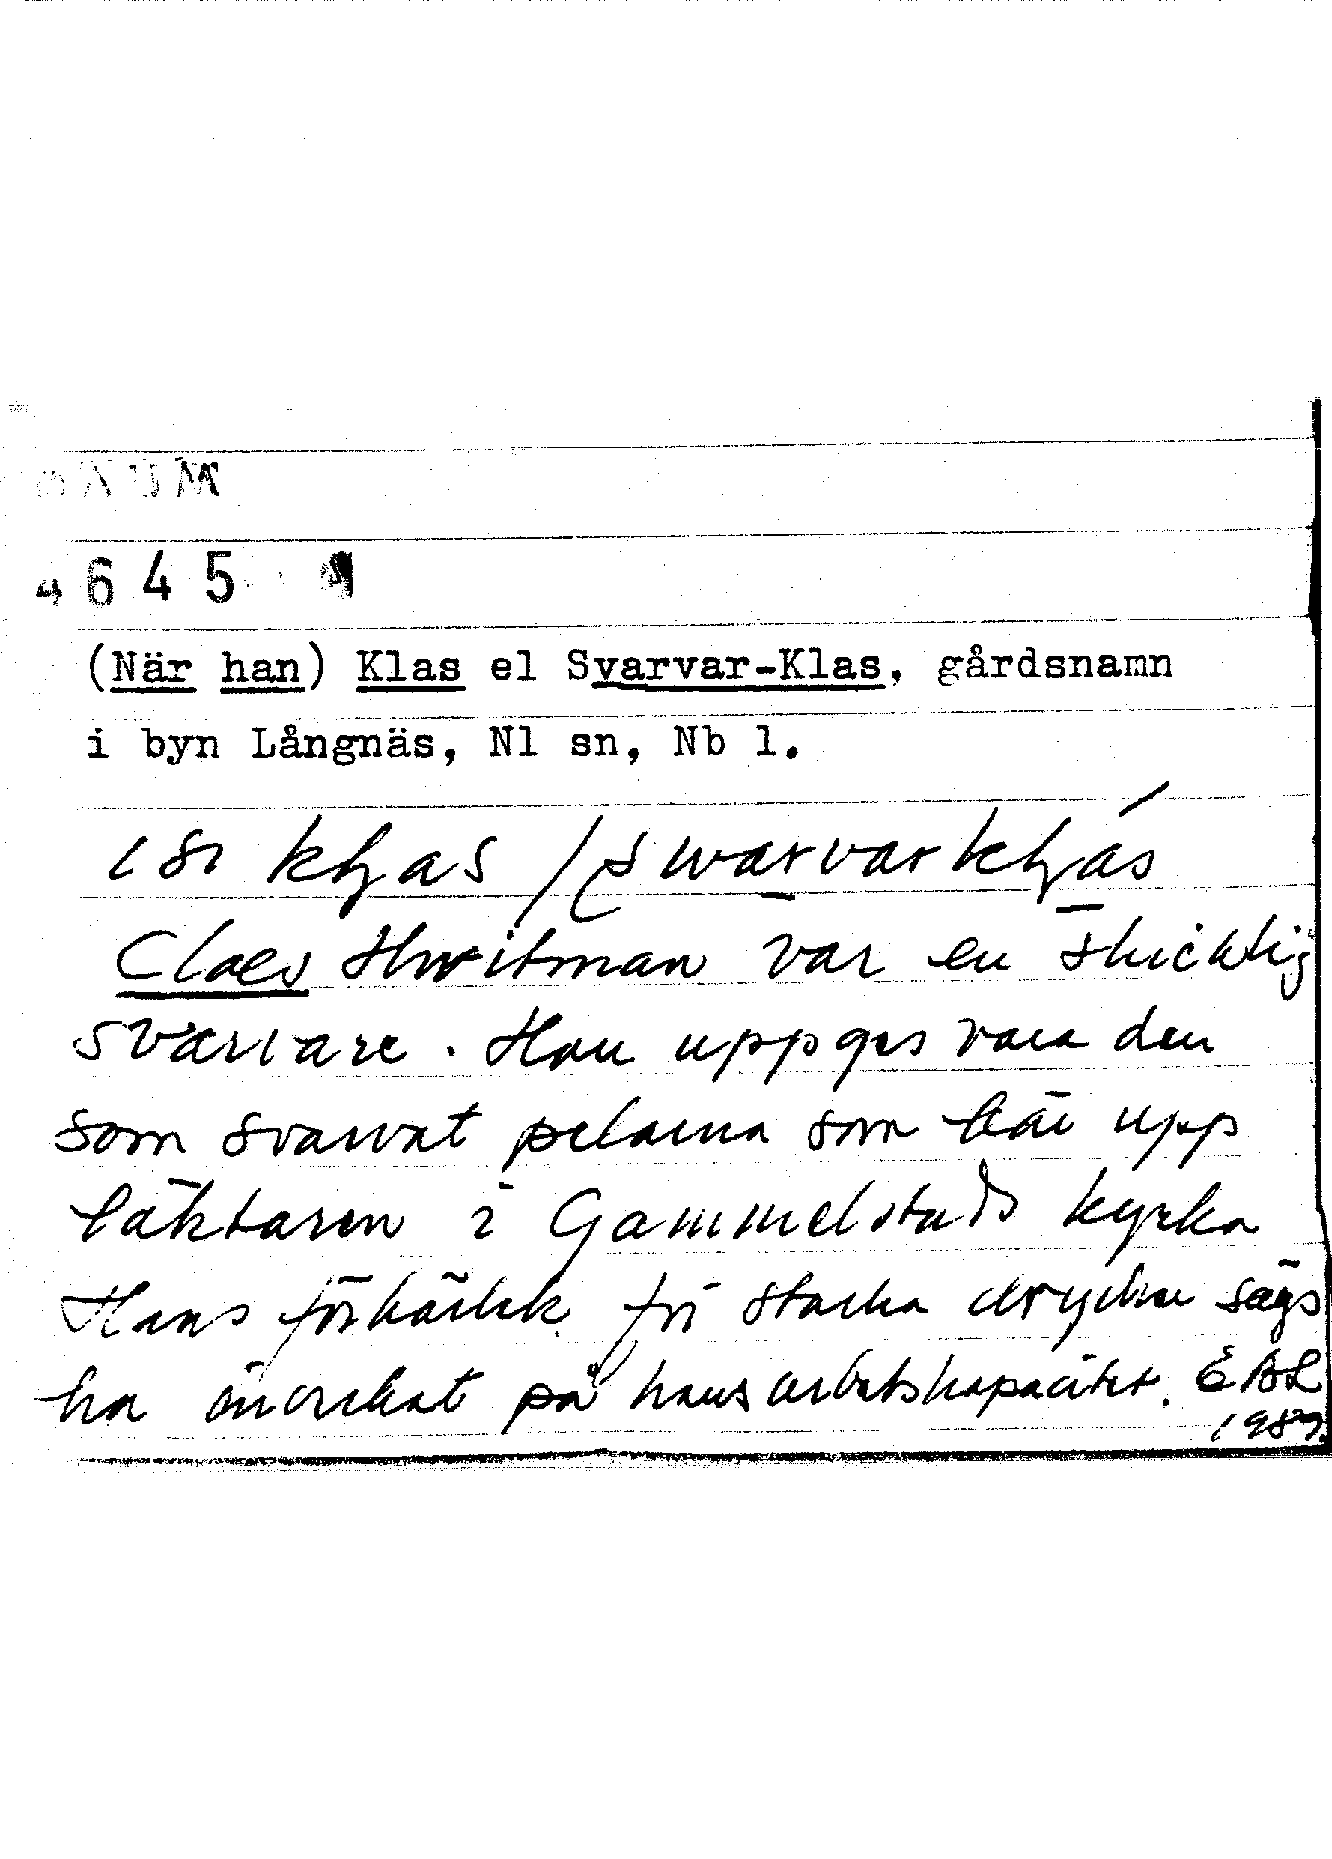 DAUM
4645
(När han) Klas el Svarvar-Klas, gårdsnamn
i byn Långnäs, Nl sn, Nb l.
Claes Hwitman var en skicklig
svarvare. Han uppges vara den
som svarvat pelarna som bär upp
läktaren i Gammelstads kyrka
Hans förkärlek för starka drycker sägs
ha inverkat på hans arbetskapacitet. EBL